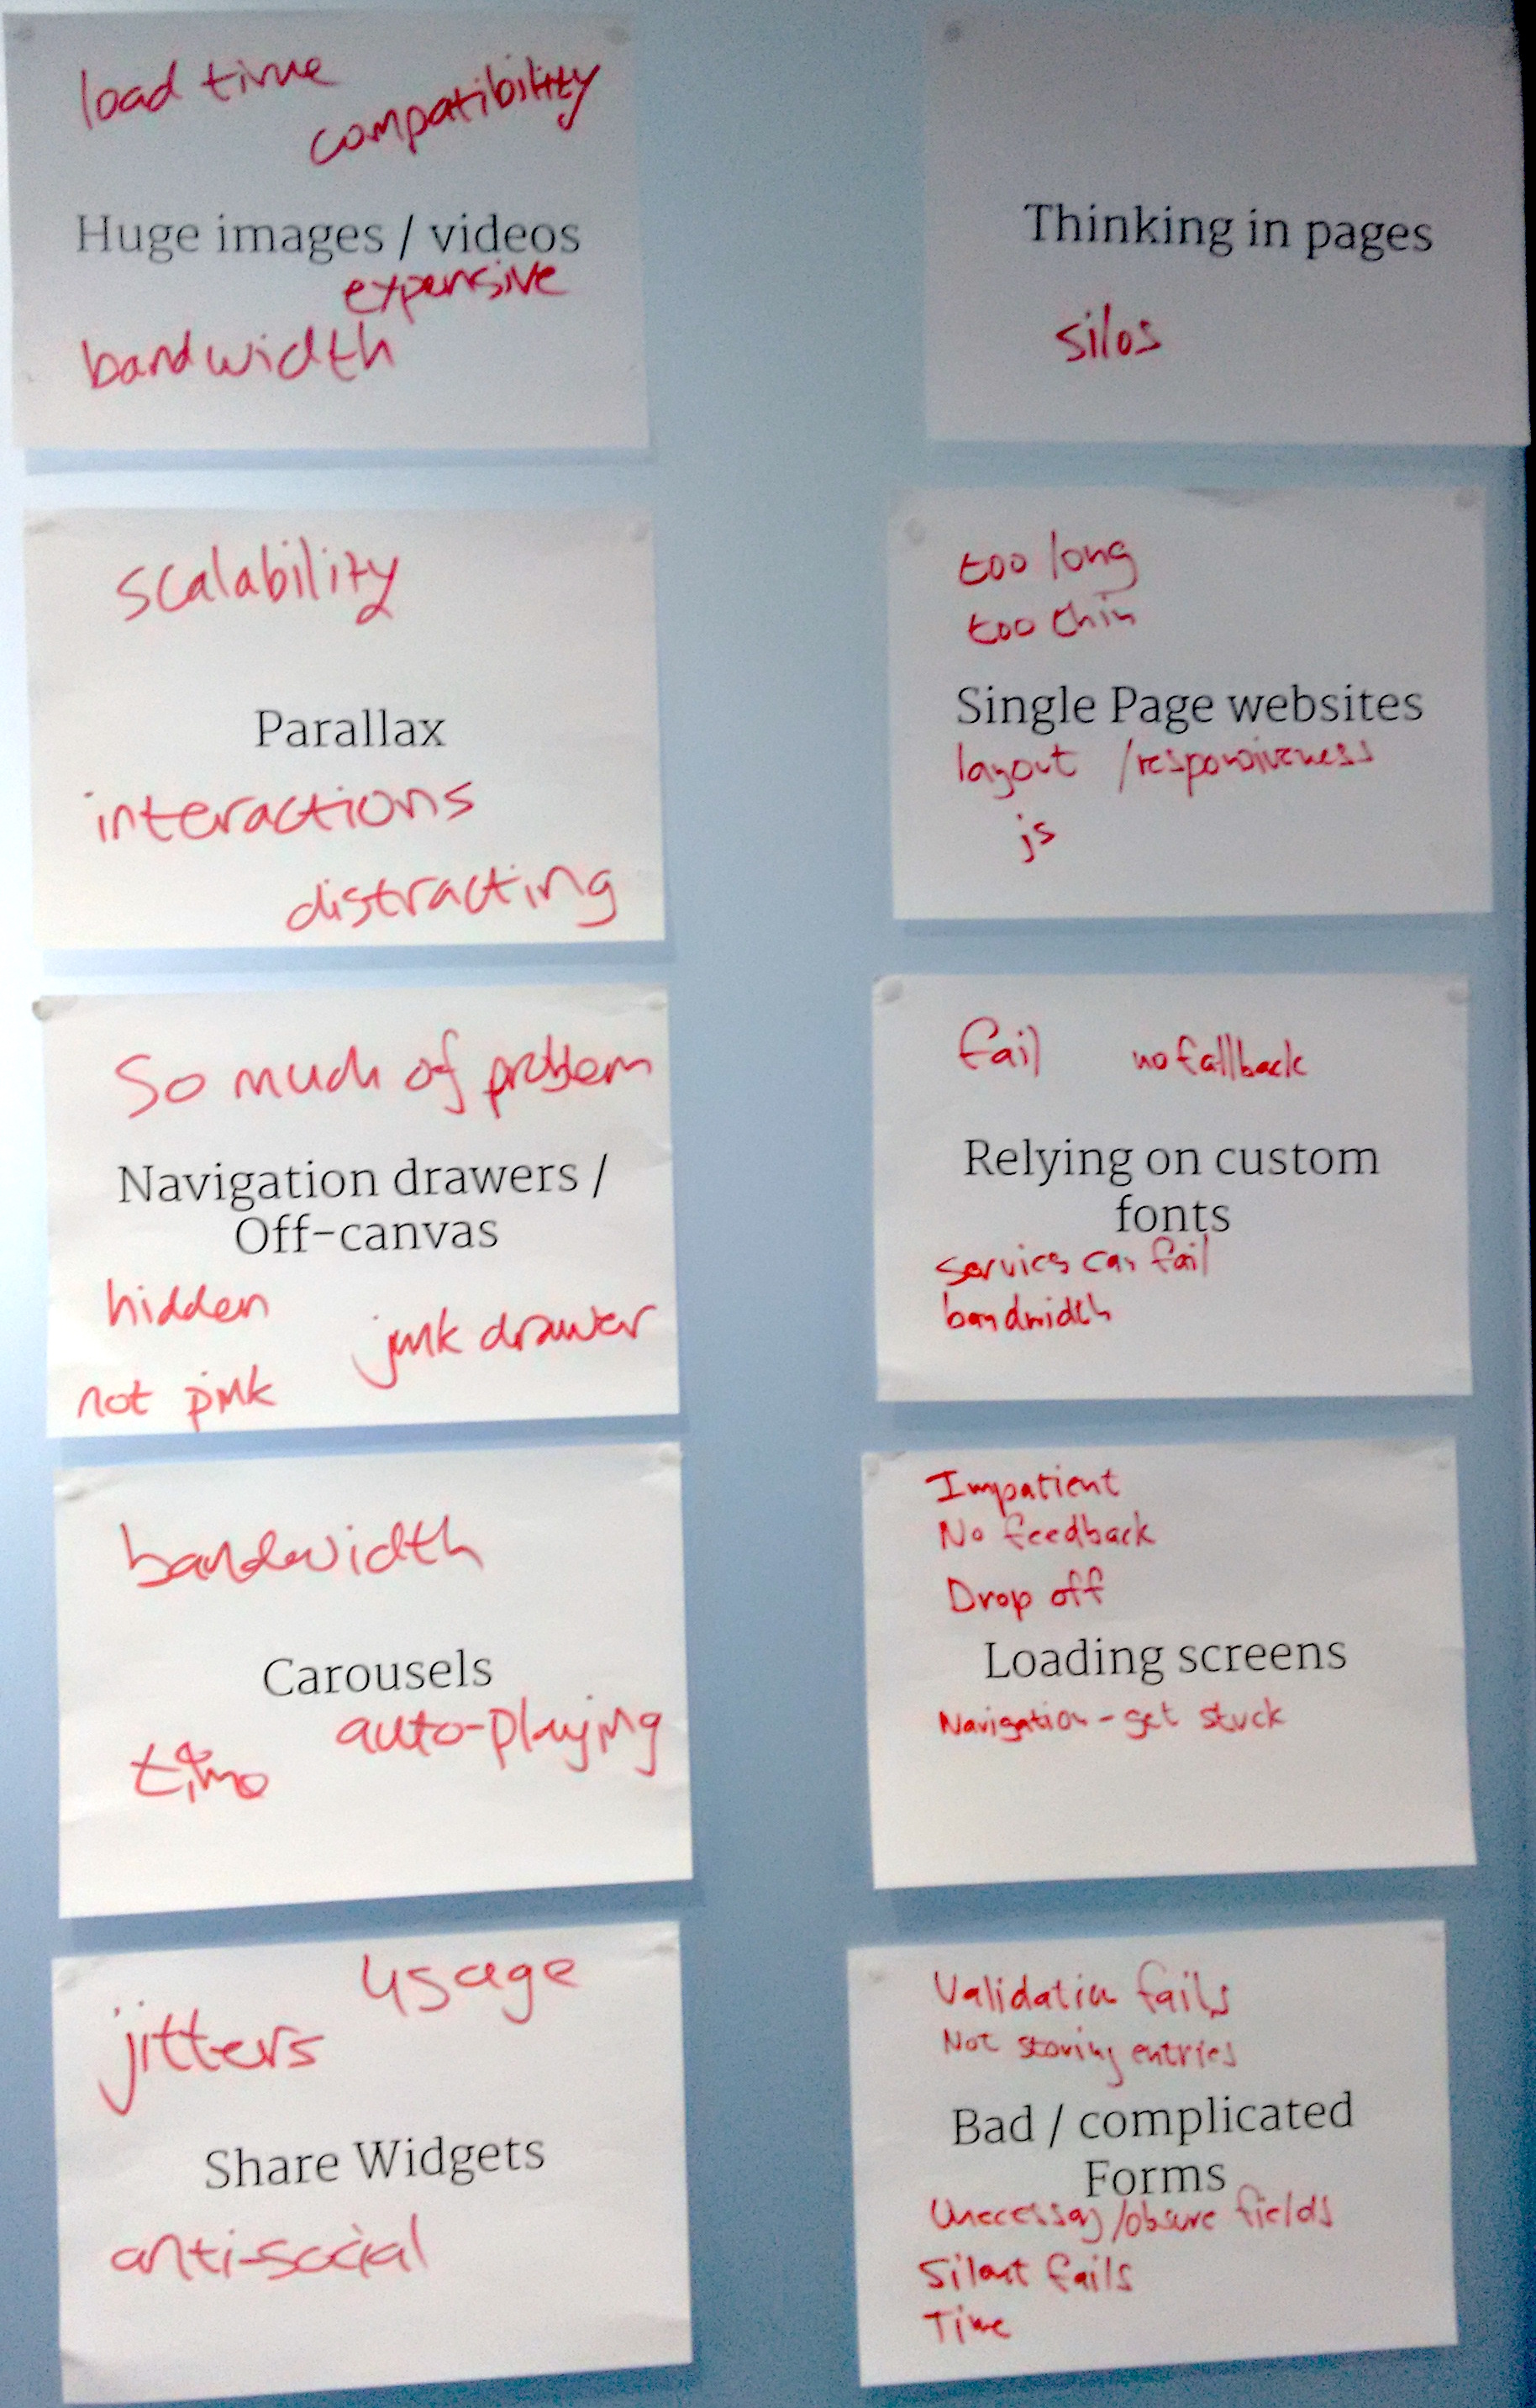 load time
compatibility
Huge images / videos
expensive
bandwidth
scalability
Parallax
interactions
distracting
So much of problem
Navigation drawers /
Off-canvas
hidden
junk drawer
not pink
bandwidth
Carousels
auto-playing
usage
jitters
Share Widgets
anti-social
Thinking in pages
silos
too long
too thin
Single Page websites
layout /responsiveness
js
fail no fallback
Relying on custom
fonts
services can fail
bandwidth
Impatient
No feedback
Drop off
Loading screens
Navigation - get stuck
Validation fails
Not storing entries
Bad / complicated
Forms
Unecessay/obsure fields
Silent fails
Time